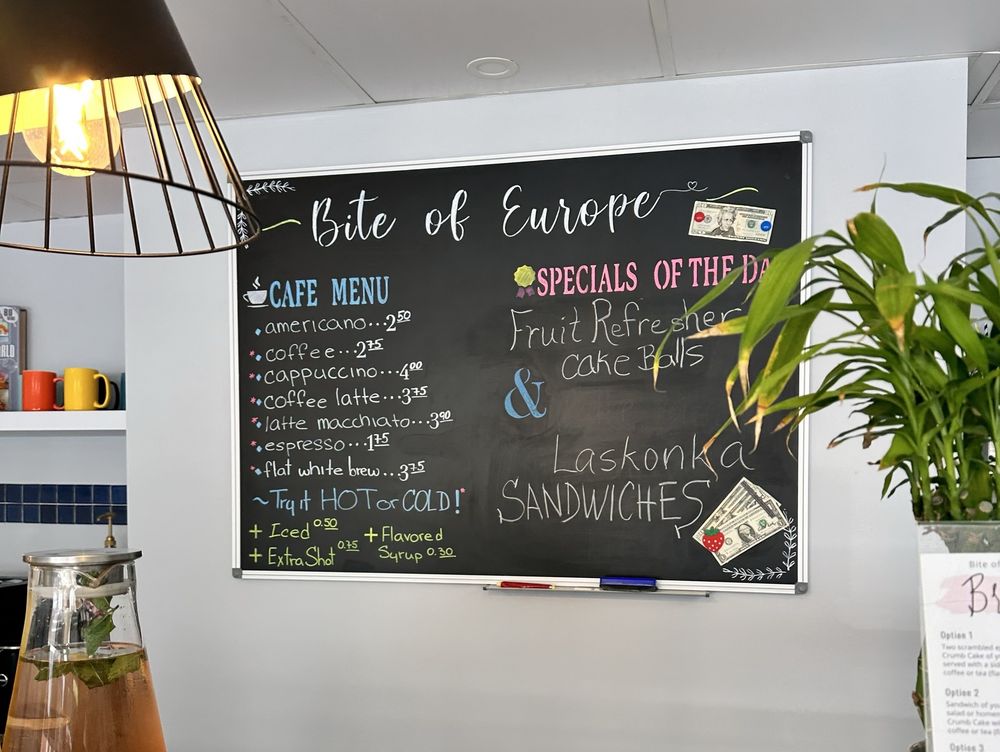 Bite of Europe
CAFE MENU
americano...2.50
coffee...2.75
cappuccino...4.00
coffee latte...3.75
latte macchiato...3.90
espresso...1.75
flat white brew...3.75
~Try it HOT or COLD!*
+ Iced 0.50
+ Extra Shot 0.75
+ Flavored
Syrup 0.30
SPECIALS OF THE DA
Fruit Refresher
cake Balls
&
Laskonka
SANDWICHES
Bite of
Option 1
Two scrambled
Crumb Cake of
served with a
coffee or tea
Option 2
Sandwich of
salad or
Crumb Cake
coffee or tea
Option 3